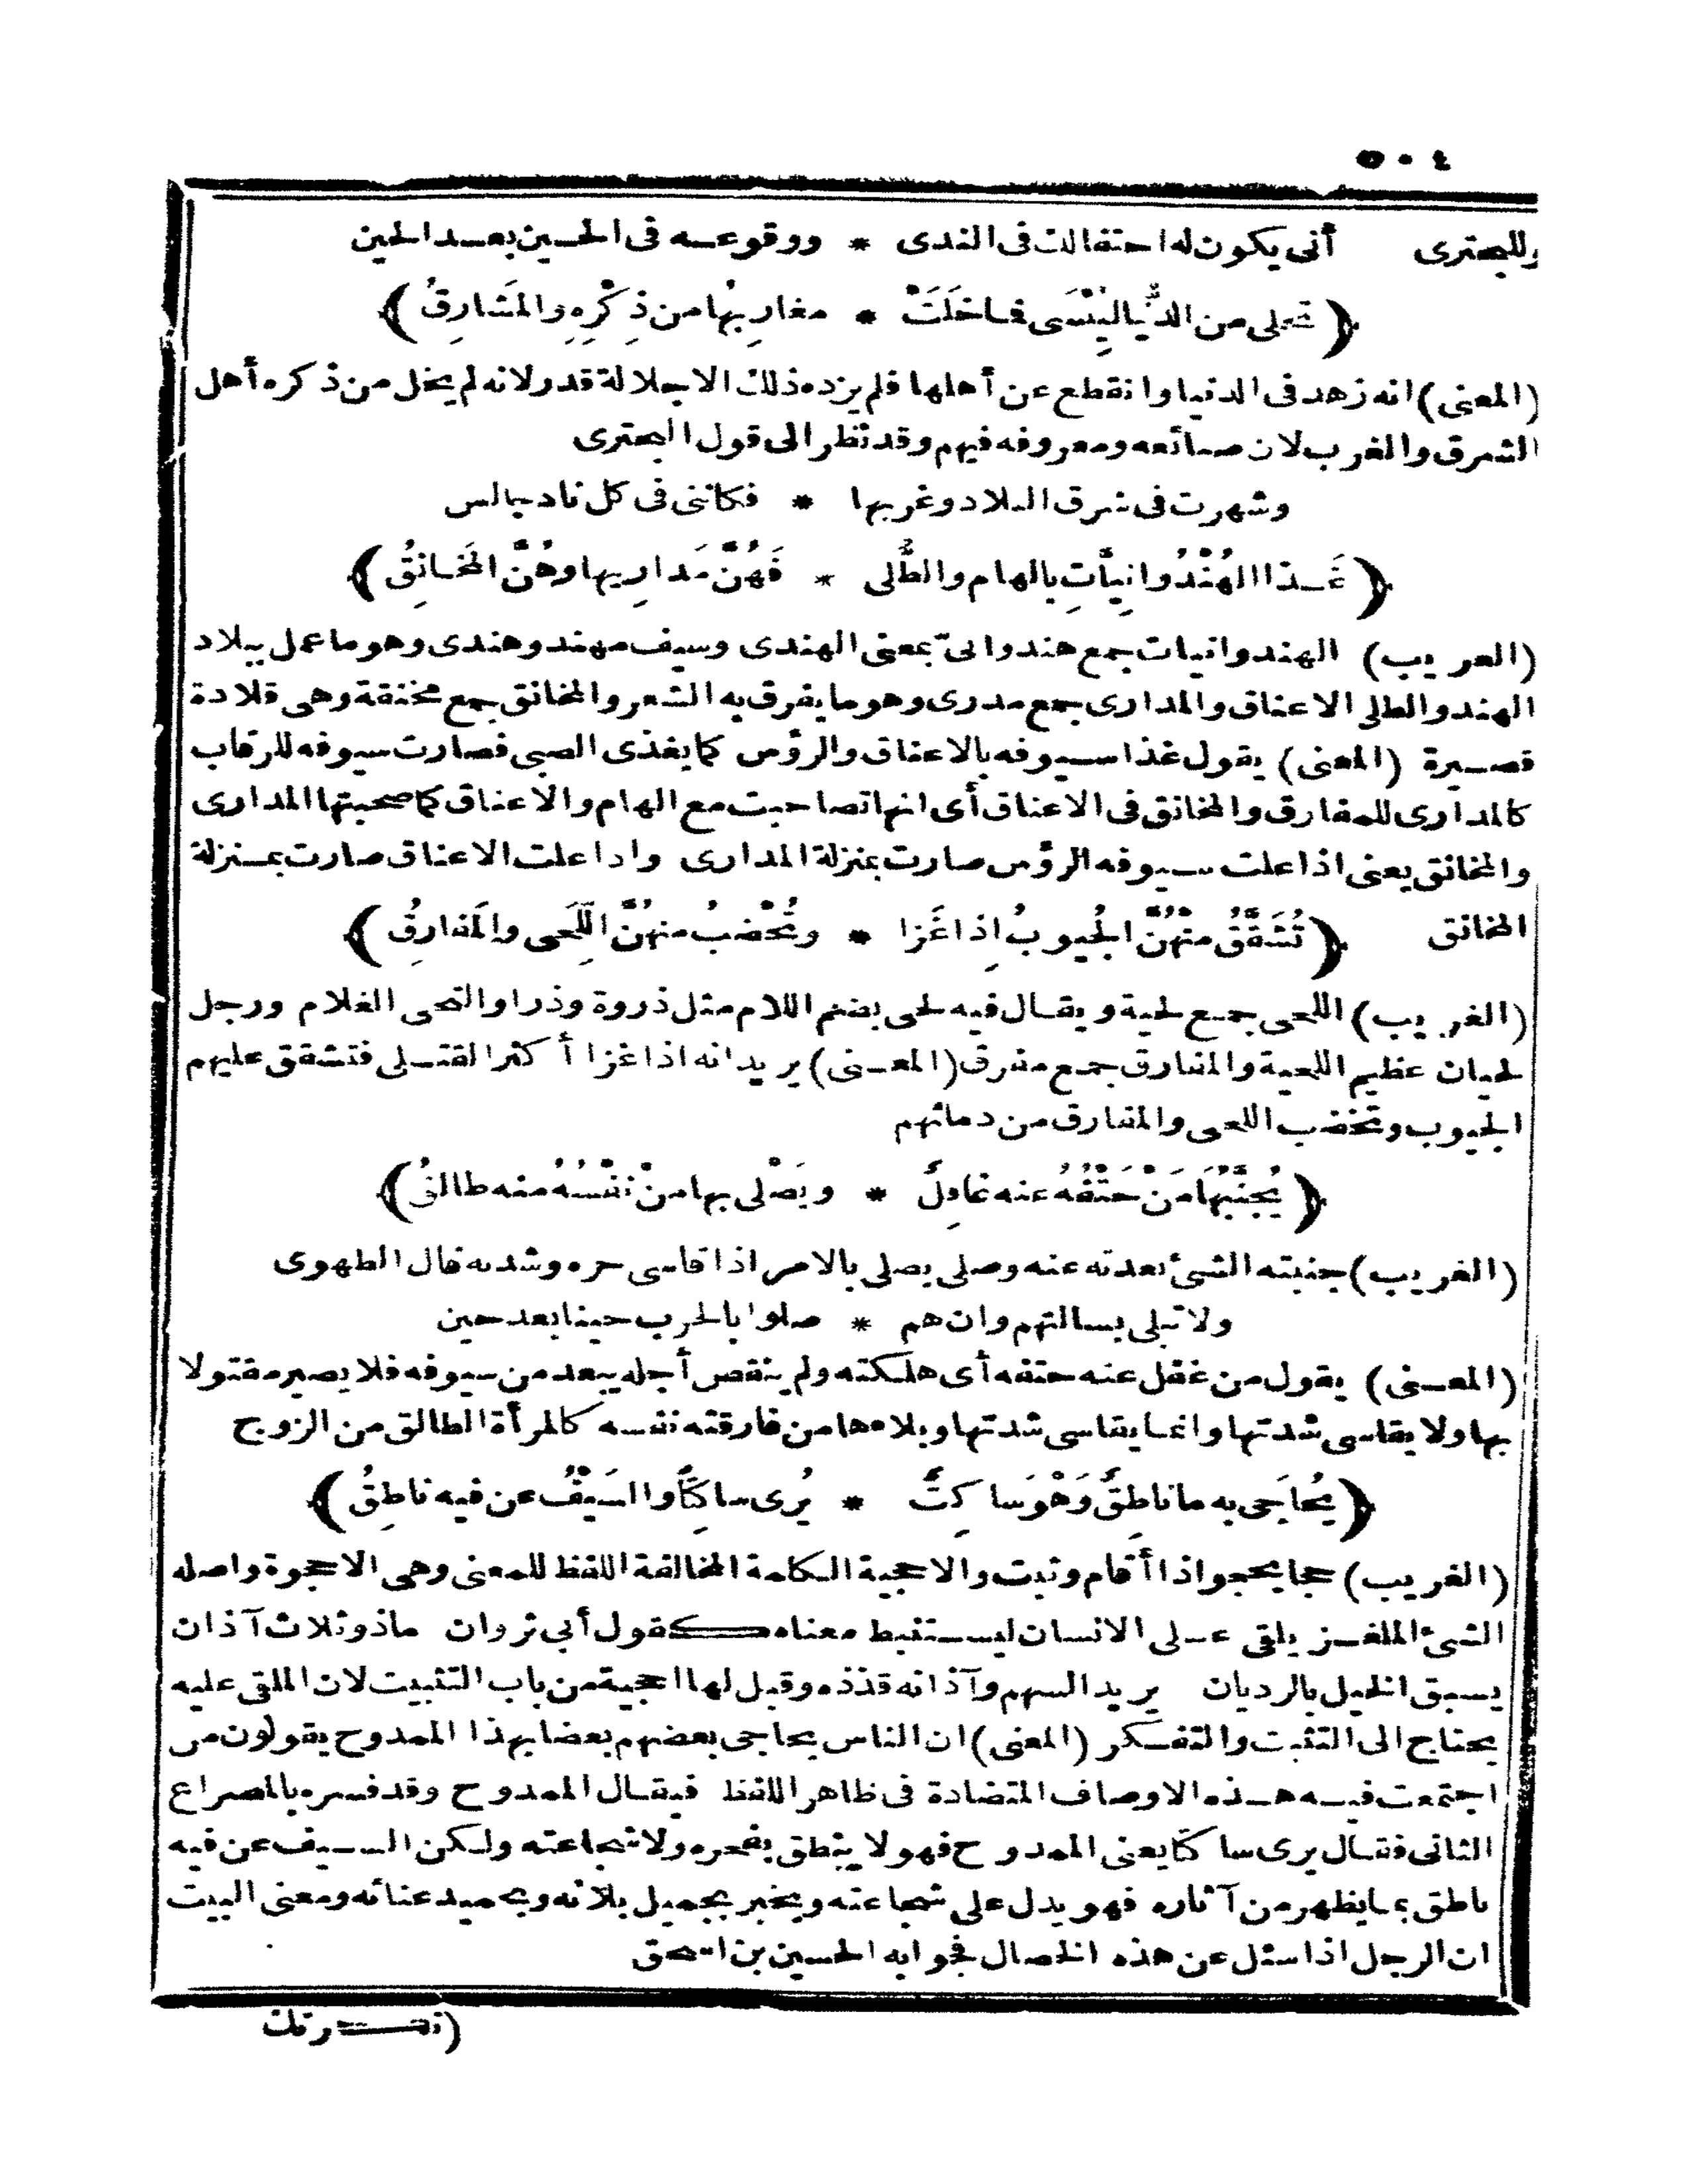 ٥٠٤
وللبحترى أنى يكون له احتفالك فى الندى * ووقوعه فى الحين بعد الحين
﴿تخلى من الدُّنْيا ليُنْسَى فما خَلَتْ * مغارِبُها من ذِكْرِهِ والمَشارِقُ﴾
(المعنى) انه زهد فى الدنيا وانقطع عن أهلها فلم يزده ذلك الا جلالة قدر لانه لم يخل من ذكره أهل
الشرق والغرب لان صنائعه ومعروفه فيهم وقد نظر الى قول البحترى
وشهرت فى شرق البلاد وغربها * فكاننى فى كل ناد جالس
﴿غَذا الهُنْدُوانِيَّاتِ بالهام والطُّلى * فَهُنَّ مَدارِيها وهُنَّ المَخانِقُ﴾
(الغريب) الهندوانيات جمع هندوانىّ بمعنى الهندى وسيف مهند وهندى وهو ما عمل ببلاد
الهند والطلى الاعناق والمدارى جمع مدرى وهو ما يفرق به الشعر والمخانق جمع مخنقة وهى قلادة
قصيرة (المعنى) يقول غذا سيوفه بالاعناق والرؤس كما يغذى الصبى فصارت سيوفه للرقاب
كالمدارى للمفارق والمخانق فى الاعناق أى انها تصاحبت مع الهام والاعناق كما صحبتها المدارى
والمخانق يعنى اذا علت سيوفه الرؤس صارت بمنزلة المدارى واذا علت الاعناق صارت بمنزلة
المخانق ﴿تُشَقَّقُ منْهُنَّ الجُيوبُ إِذا غَزا * وتُخْضَبُ منهُنَّ اللِّحَى والمَفارِقُ﴾
(الغريب) اللحى جمع لحية ويقال فيه لحى بضم اللام مثل ذروة وذرا والتحى الغلام ورجل
لحيان عظيم اللحية والمفارق جمع مفرق (المعنى) يريد انه اذا غزا أكثر القتلى فتشقق عليهم
الجيوب وتخضب اللحى والمفارق من دمائهم
﴿يُجَنَّبُها مَنْ حَتْفُهُ عنه غافِلٌ * ويَصْلى بها منْ نفْسُهُ منه طالقُ﴾
(الغريب) جنبته الشئ بعدته عنه وصلى يصلى بالامر اذا قاسى حره وشدته قال الطهوى
ولا تبلى بسالتهم وان هم * صلوا بالحرب حينا بعد حين
(المعنى) يقول من غفل عنه حتفه أى هلكته ولم ينقص أجله يبعد من سيوفه فلا يصير مقتولا
بها ولا يقاسى شدتها وانما يقاسى شدتها وبلاءها من فارقته نفسه كالمرأة الطالق من الزوج
﴿يُحاجَى به ما ناطِقٌ وَهْوَ ساكِتٌ * يُرى ساكِتًا والسَيْفُ عن فيه ناطِقُ﴾
(الغريب) حجا يحجو اذا أقام وثبت والاحجية الكلمة المخالفة اللفظ للمعنى وهى الاحجوة واصله
الشئ الملغز يلقى على الانسان ليستنبط معناه كقول أبى ثروان ما ذو ثلاث آذان
يسبق الخيل بالرديان يريد السهم وآذانه قذذه وقيل لها احجية من باب التثبيت لان الملقى عليه
يحتاج الى التثبت والتفكر (المعنى) ان الناس يحاجى بعضهم بعضا بهذا الممدوح يقولون من
اجتمعت فيه هذه الاوصاف المتضادة فى ظاهر اللفظ فيقال الممدوح وقد فسره بالمصراع
الثانى فقال يرى ساكتا يعنى الممدوح فهو لا ينطق بفخره ولا شجاعته ولكن السيف عن فيه
ناطق بما يظهر من آثاره فهو يدل على شجاعته ويخبر بجميل بلائه وبحميد عنائه ومعنى البيت
ان الرجل اذا سئل عن هذه الخصال فجوابه الحسين بن اسحق
(نكرتك